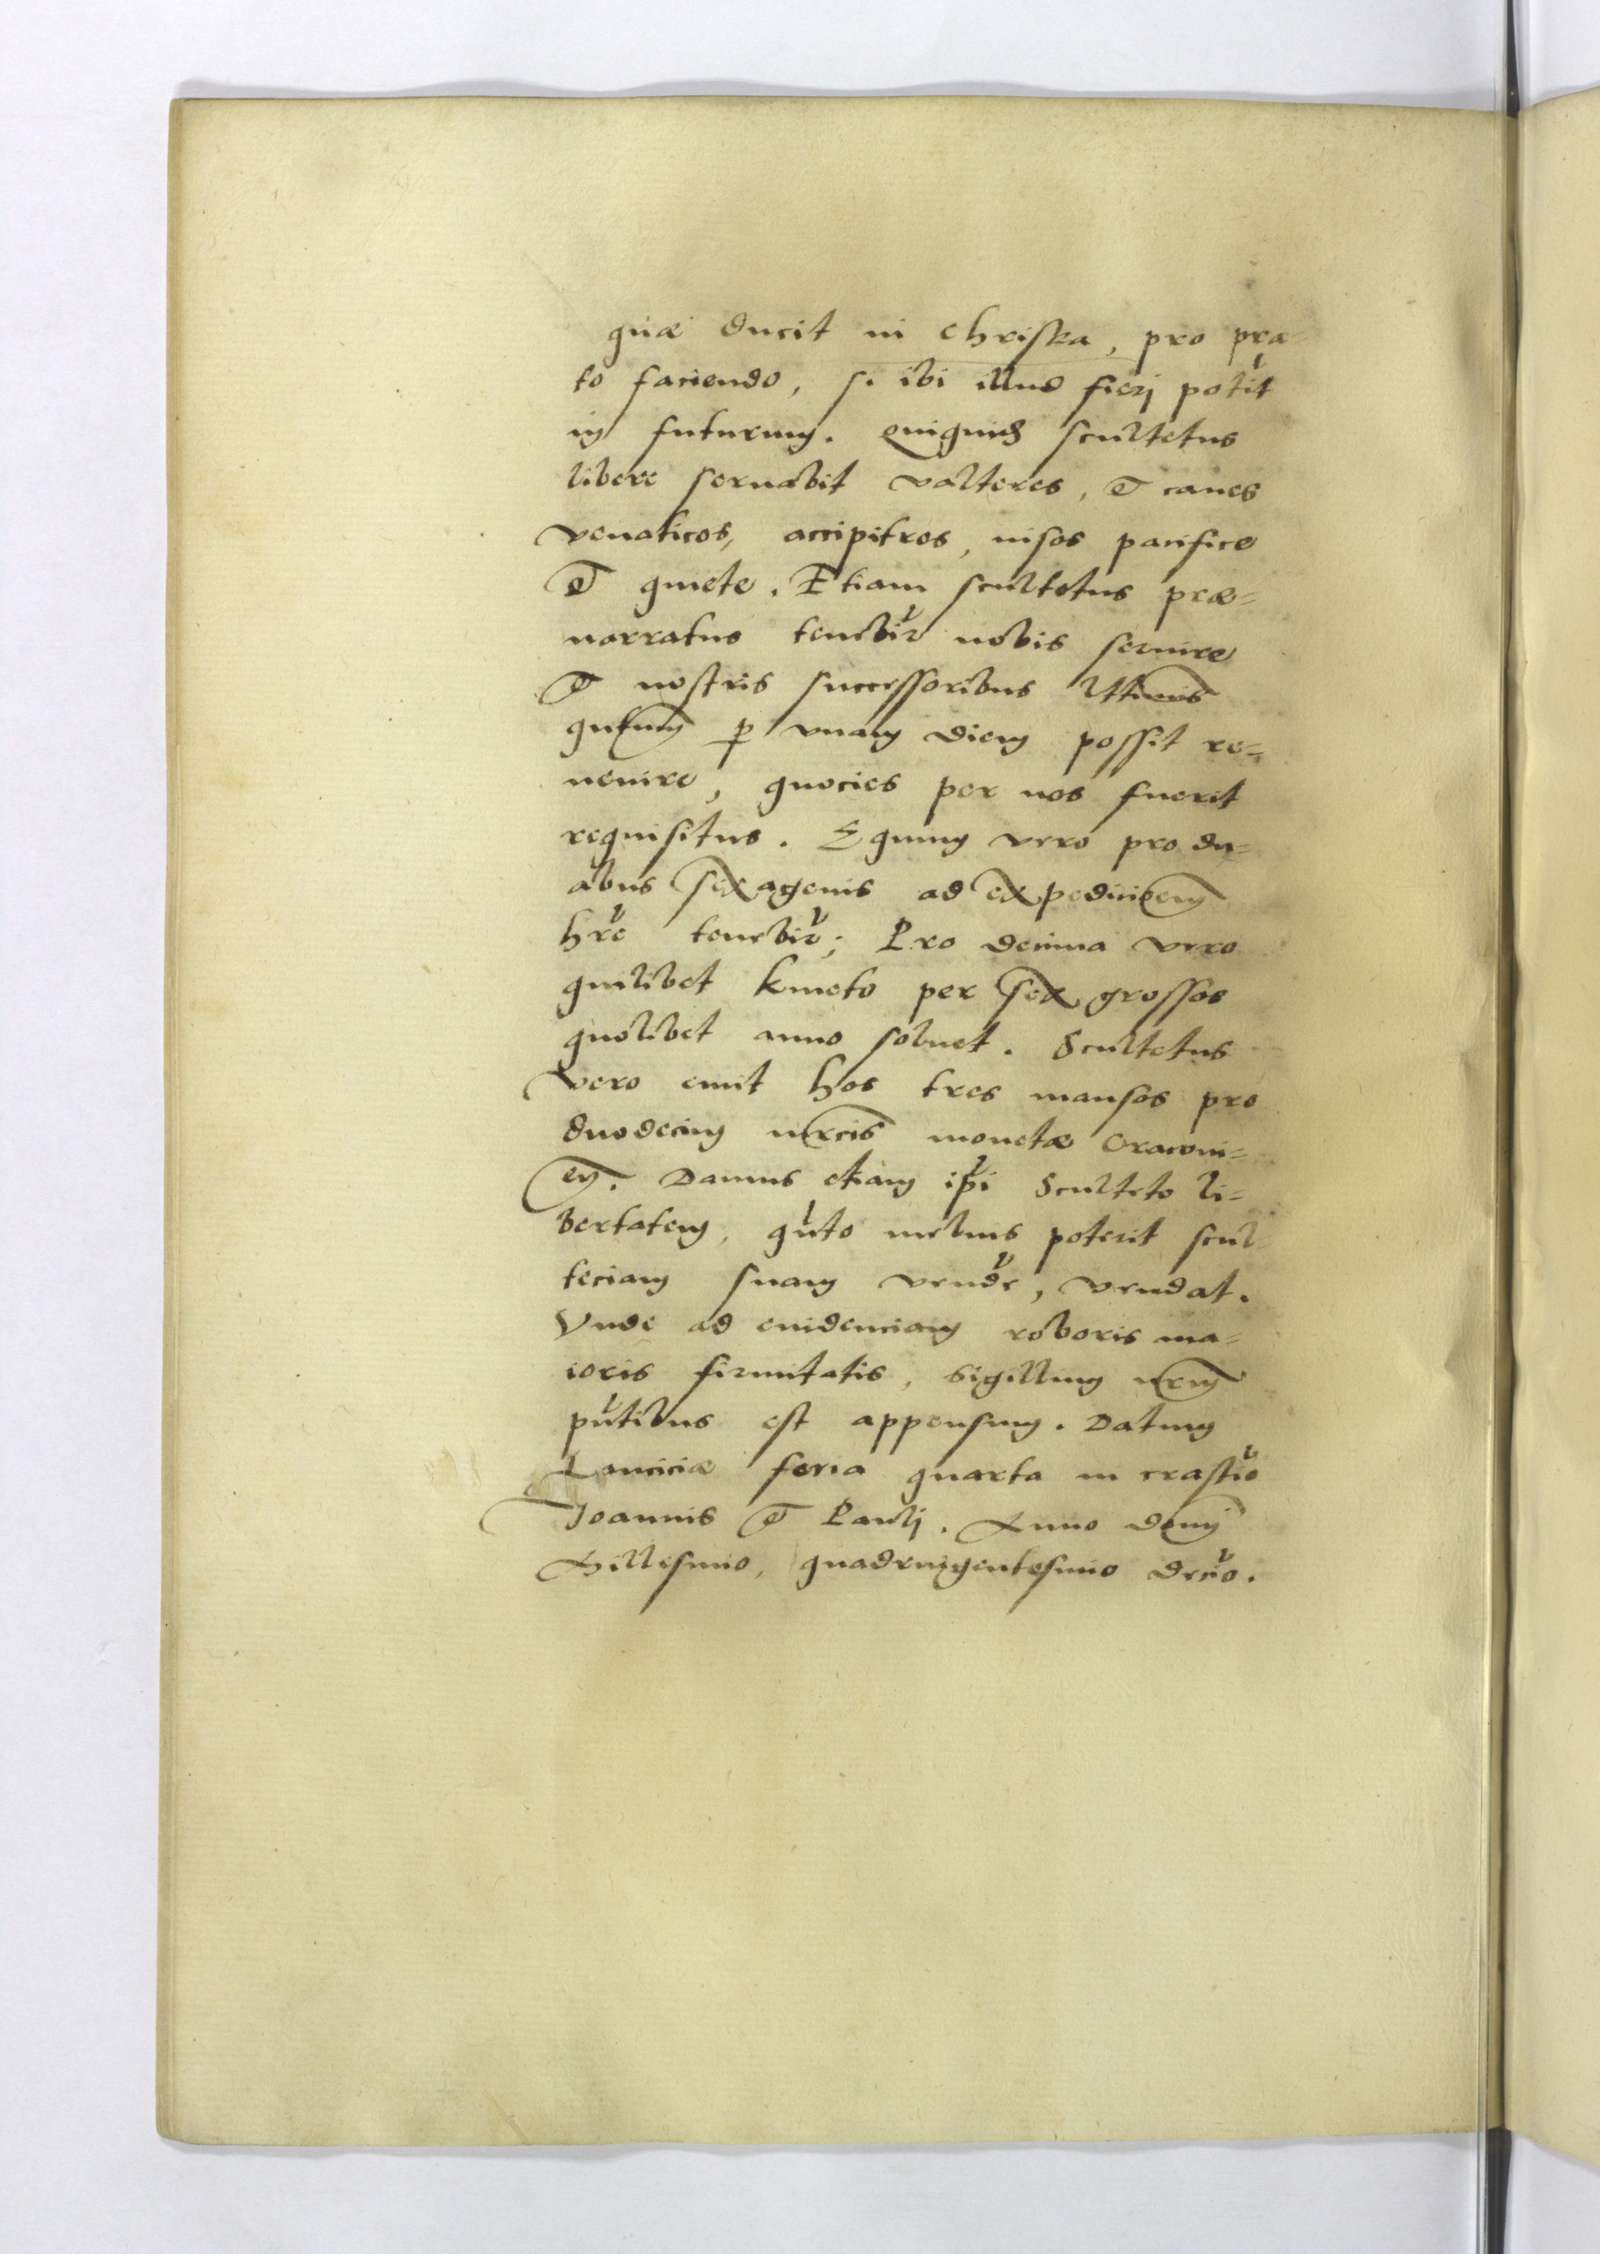 quæ ducit in Chriska, pro pra-
to faciendo, si ibi illud fieri potit
in futurum. Quiquid scultetus
libere servabit valteres, et canes
venaticos, accipitres, nisos pacifice
et quiete. Etiam scultetus præ-
narratus tenebit nobis servire
et nostris successoribus
qntum p unam diem possit re-
venire, quocies per nos fuerit
requisitus. Equum vero pro du-
abus sexagenis ad expedicioem
hre tenebit; Pro decima vero
quilibet kmeto per sex grossos
quolibet anno solvet. Scultetus
vero emit hos tres mansos pro
duodecim mrcis monetæ Cracovi-
en. Damus etiam ipi Sculteto li-
bertatem, quto melius poterit scul-
teciam suam vendre, vendat.
Vnde ad evidenciam roboris ma-
ioris firmitatis, sigillum nrum
putibus est appensum. Datum
Lanciciæ feria quarta in crastio
Joannis et Pauli. Anno domi
Millesimo, quadringentesimo decio.